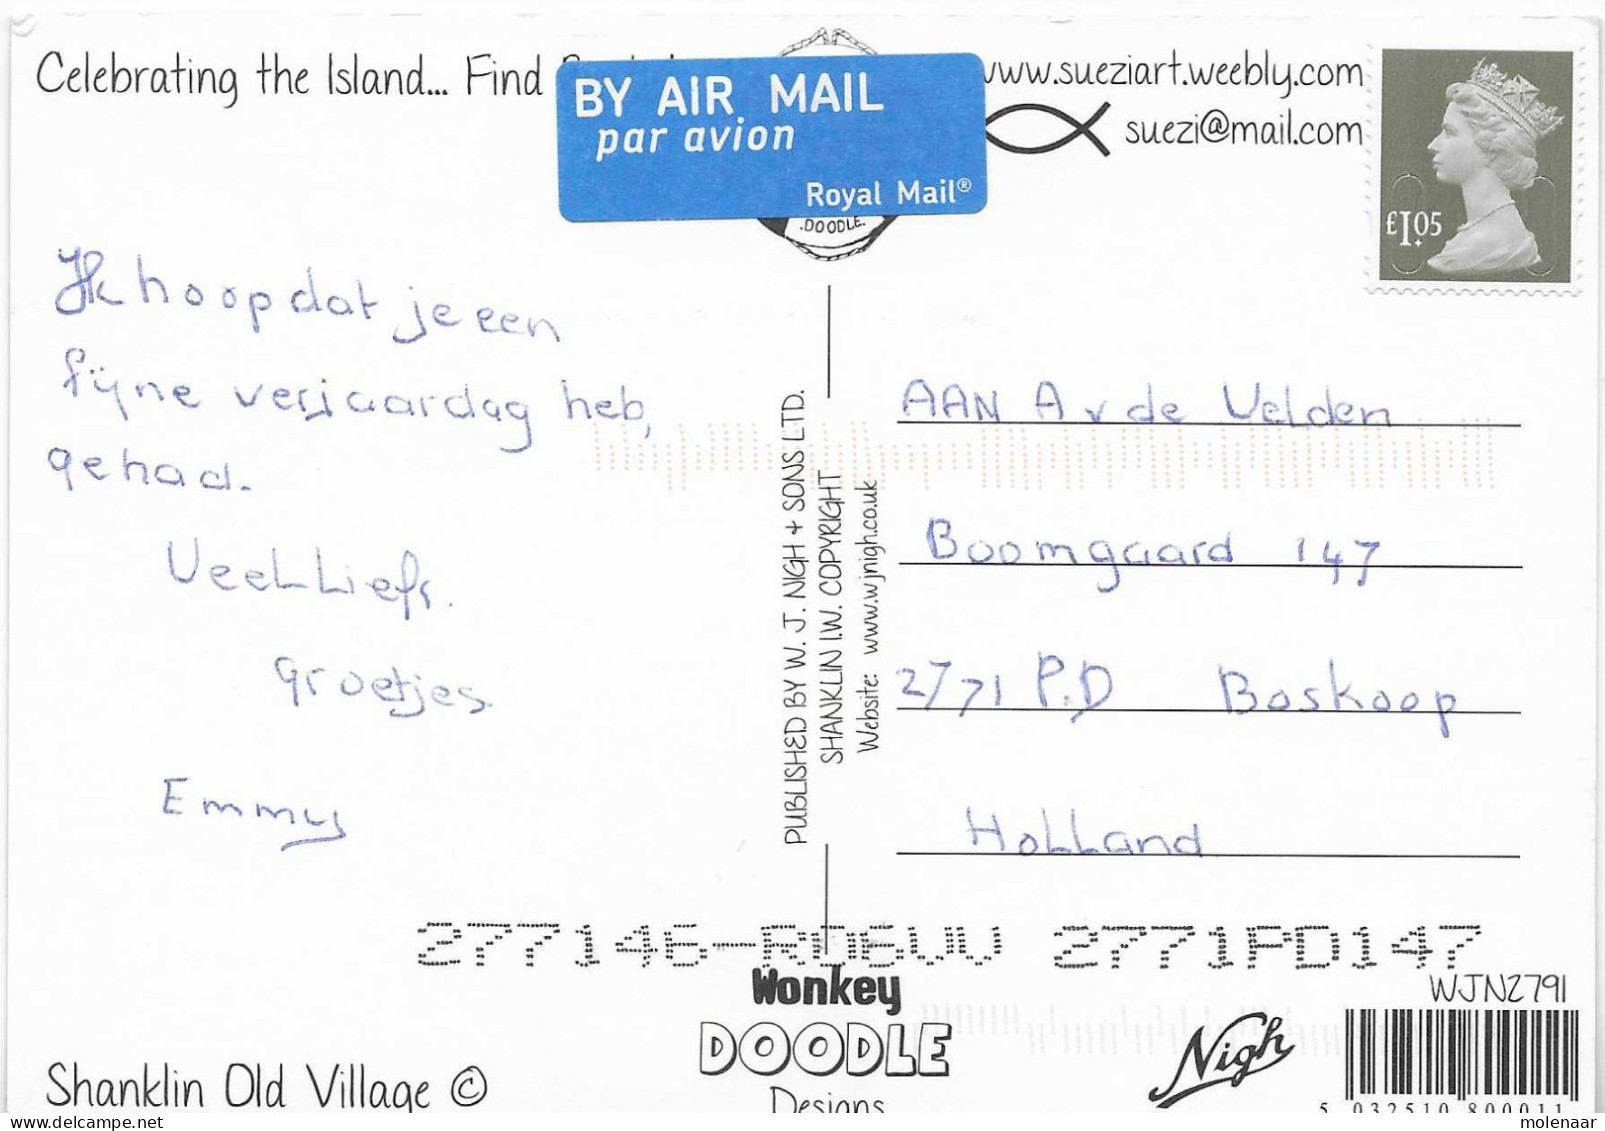 Celebrating the Island... Find
BY AIR MAIL
par avion
Royal Mail®
www.sueziart.weebly.com
suezi@mail.com
£1.05
.DOODLE.
Ik hoop dat je een
fijne verjaardag heb,
gehad.
Veel Liefs.
groetjes
Emmy
PUBLISHED BY W. J. NIGH + SONS LTD.
SHANKLIN I.W. COPYRIGHT
Website: www.wjnigh.co.uk
AAN A v de Velden
Boomgaard 147
2771 P.D Boskoop
Holland
277146-R06VV 2771PD147
Wonkey
DOODLE
Designs
Nigh
WJN2791
5 032510 800011
Shanklin Old Village ©
molenaar